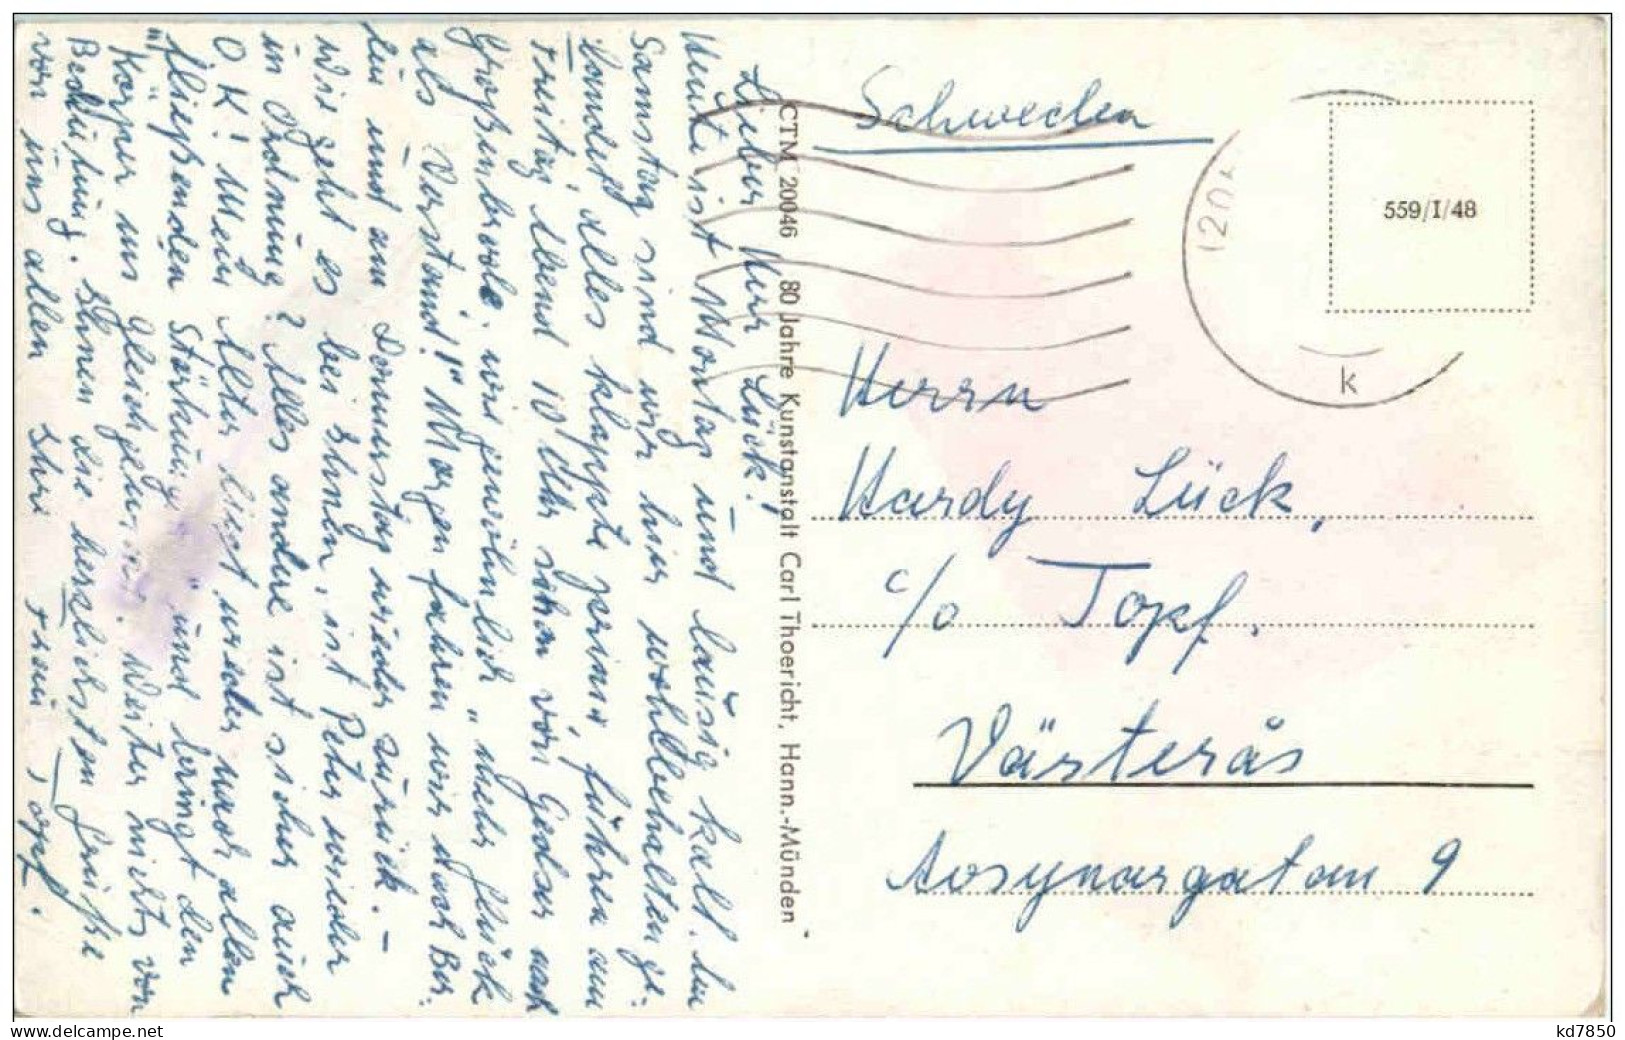 Lieber Herr Lück!
Heute ist Montag und lausig kalt. Am
Samstag sind wir hier wohlbehalten ge-
landet, alles klappte prima, fuhren am
Freitag Abend 10 Uhr schon von Gedser nach
Großenbrode, wie gewöhnlich „mehr Glück
als Verstand!“ Morgen fahren wir nach Ber-
lin und am Donnerstag wieder zurück. –
Wie geht es bei Ihnen, ist Peter wieder
in Ordnung? Alles andere ist sicher auch
O K! Mein Alter liegt wieder nach allen
„fließenden Stärkungen“ und bringt den
Körper ins Gleichgewicht. Weiter nichts von
Bedeutung. Ihnen die herzlichsten Grüße
von uns allen Ihre Frau Topf.
CTM 20046 80 Jahre Kunstanstalt Carl Thoericht, Hann.-Münden
Schweden
(20
k
559/I/48
Herrn
Hardy Lück,
c/o Topf.
Västerås
9
kd7850
www.delcampe.net